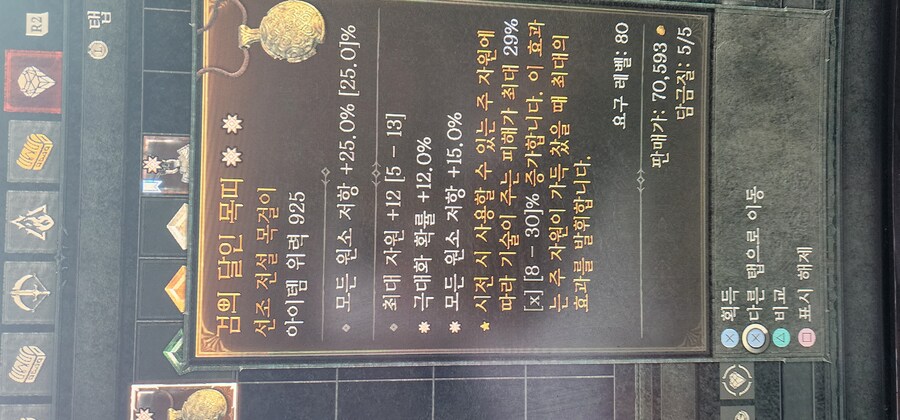 R2
탭
검의 달인 목띠
선조 전설 목걸이
아이템 위력 925
모든 원소 저항 +25.0% [25.0]%
최대 자원 +12 [5 - 13]
극대화 확률 +12.0%
모든 원소 저항 +15.0%
시전 시 사용할 수 있는 주 자원에
따라 기술이 주는 피해가 최대 29%
[x] [8 - 30]% 증가합니다. 이 효과
는 주 자원이 가득 찼을 때 최대의
효과를 발휘합니다.
요구 레벨: 80
판매가: 70,593
담금질: 5/5
획득
다른 탭으로 이동
비교
표시 해제